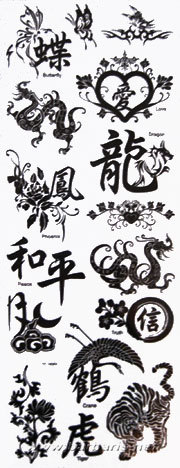 蝶
Butterfly
愛
Love
Dragon
龍
鳳
Phoenix
和平
Peace
信
Truth
鶴
Crane
虎
Tiger